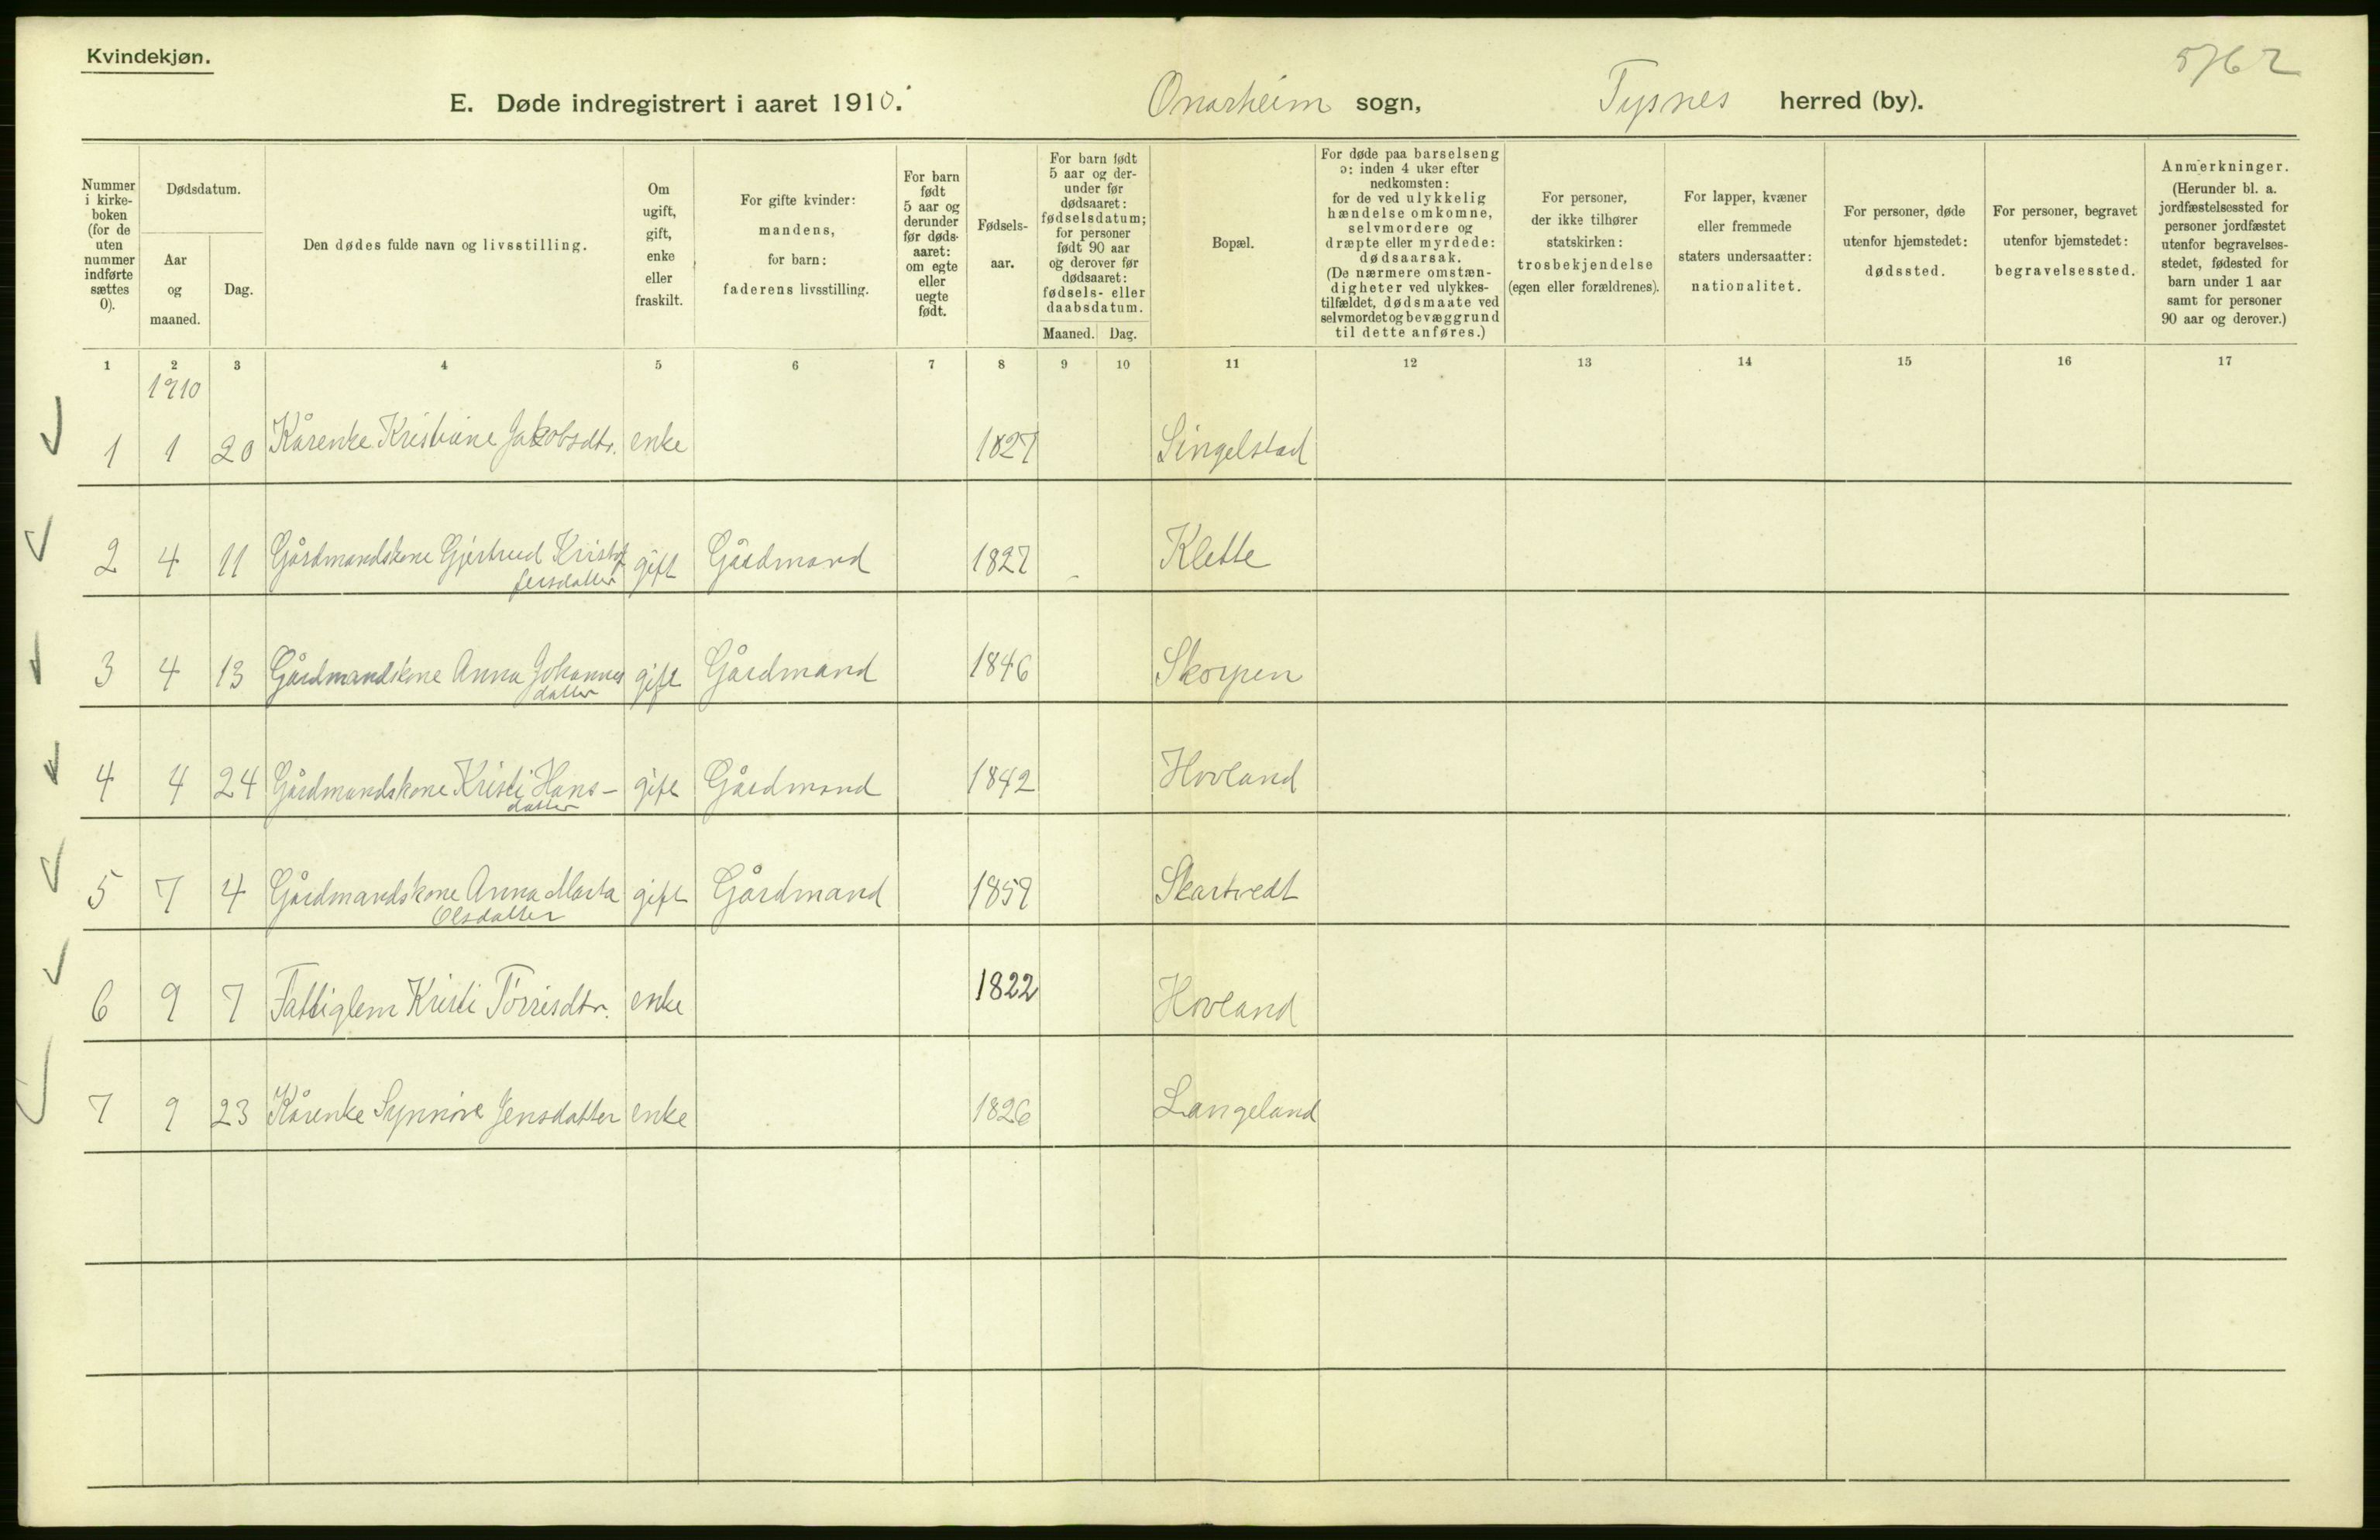 Kvindekjøn.
5762
E. Døde indregistrert i aaret 1910. Onarheim sogn, Tysnes herred (by).
Nummer i kirke-boken (for de uten nummer indførte sættes 0).
Dødsdatum.
Aar og maaned.
Dag.
Den dødes fulde navn og livsstilling.
Om ugift, gift, enke eller fraskilt.
For gifte kvinder: mandens, for barn: faderens livsstilling.
For barn født 5 aar og derunder før døds-aaret: om egte eller uegte født.
Fødsels-aar.
For barn født 5 aar og der-under før dødsaaret: fødselsdatum; for personer født 90 aar og derover før dødsaaret: fødsels- eller daabsdatum.
Maaned. Dag.
Bopæl.
For døde paa barselseng ɔ: inden 4 uker efter nedkomsten: for de ved ulykkelig hændelse omkomne, selvmordere og dræpte eller myrdede: dødsaarsak. (De nærmere omstæn-digheter ved ulykkes-tilfældet, dødsmaate ved selvmordet og bevæggrund til dette anføres.)
For personer, der ikke tilhører statskirken: trosbekjendelse (egen eller forældrenes).
For lapper, kvæner eller fremmede staters undersaatter: nationalitet.
For personer, døde utenfor hjemstedet: dødssted.
For personer, begravet utenfor bjemstedet: begravelsessted.
Anmerkninger. (Herunder bl. a. jordfæstelsessted for personer jordfæstet utenfor begravelses-stedet, fødested for barn under 1 aar samt for personer 90 aar og derover.)
1 2 3 4 5 6 7 8 9 10 11 12 13 14 15 16 17
1910
1 1 20 Kårenke Kristiane Jakobsdtr. enke 1827 Singelstad
2 4 11 Gårdmandskone Gjertrud Kristof gift Gårdmand 1827 Klette
fersdatter
3 4 13 Gårdmandskone Anna Johannes gift Gårdmand 1846 Skorpen
datter
4 4 24 Gårdmandskone Kristi Hans- gift Gårdmand 1842 Hovland
datter
5 7 4 Gårdmandskone Anna Marta gift Gårdmand 1859 Skartvedt
Olsdatter
6 9 7 Fattiglem Kristi Tørrisdtr. enke 1822 Hovland
7 9 23 Kårenke Synnøve Jensdatter enke 1826 Langeland